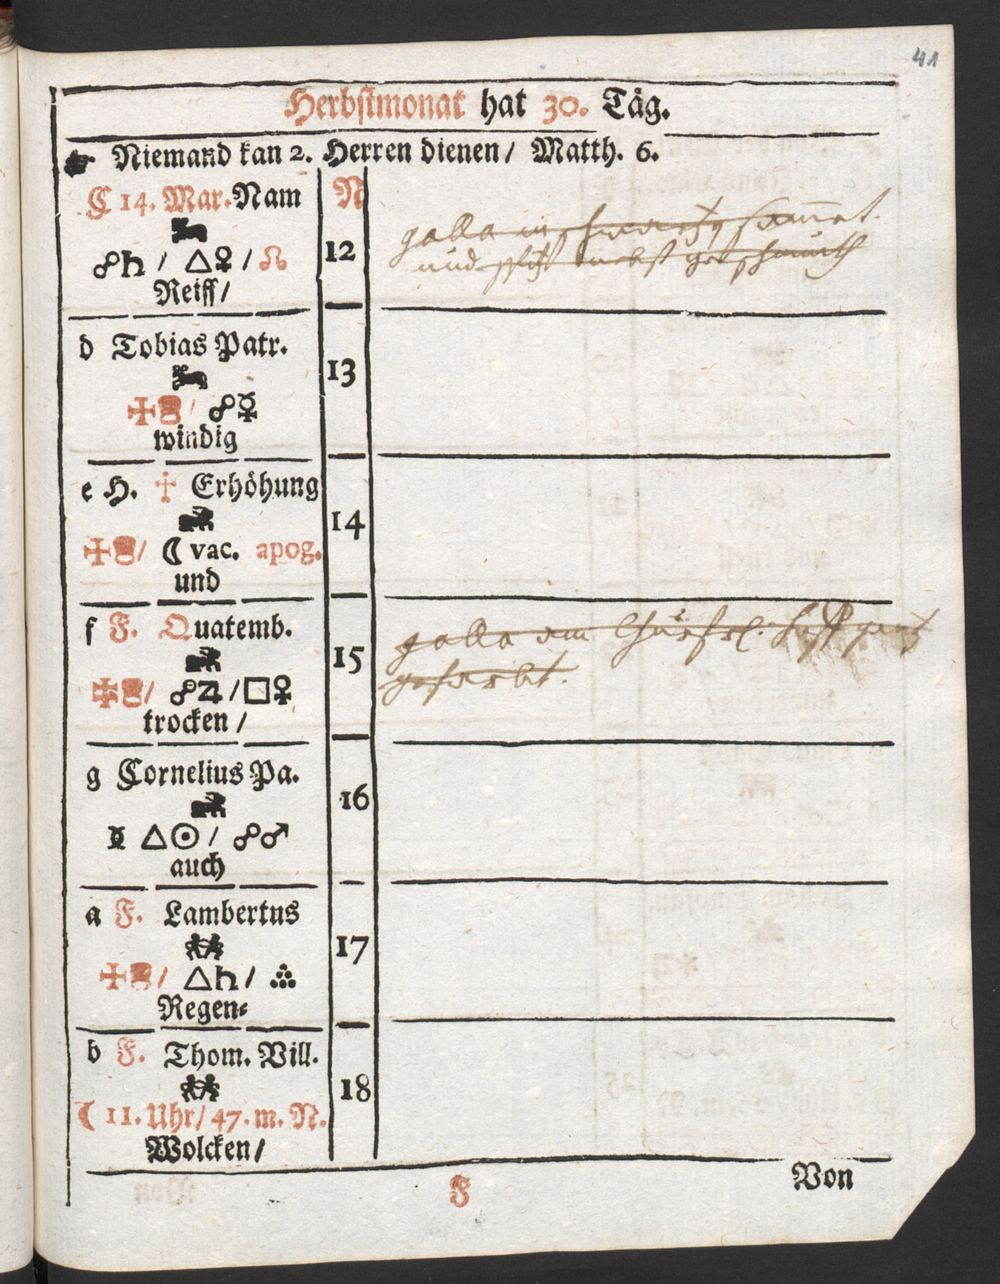 41
Herbstmonat hat 30. Täg.
☛ Niemand kan 2. Herren dienen / Matth. 6.
C 14. Mar. Nam N
☍♄ / △♀ / ☊ 12
Reiff /
galla in
und
d Tobias Patr.
13
☍☿
windig
e H. † Erhöhung
14
/ ☾ vac. apog.
und
f F. Quatemb.
15
/ ☍♃ / □♀
trocken /
galla am Churfrl.
gefarbt.
g Cornelius Pa.
16
△☉ / ☍♂
auch
a F. Lambertus
17
/ △♄ /
Regen=
b F. Thom. Vill.
18
☾ 11. Uhr / 47. m. N.
Wolcken /
F Von